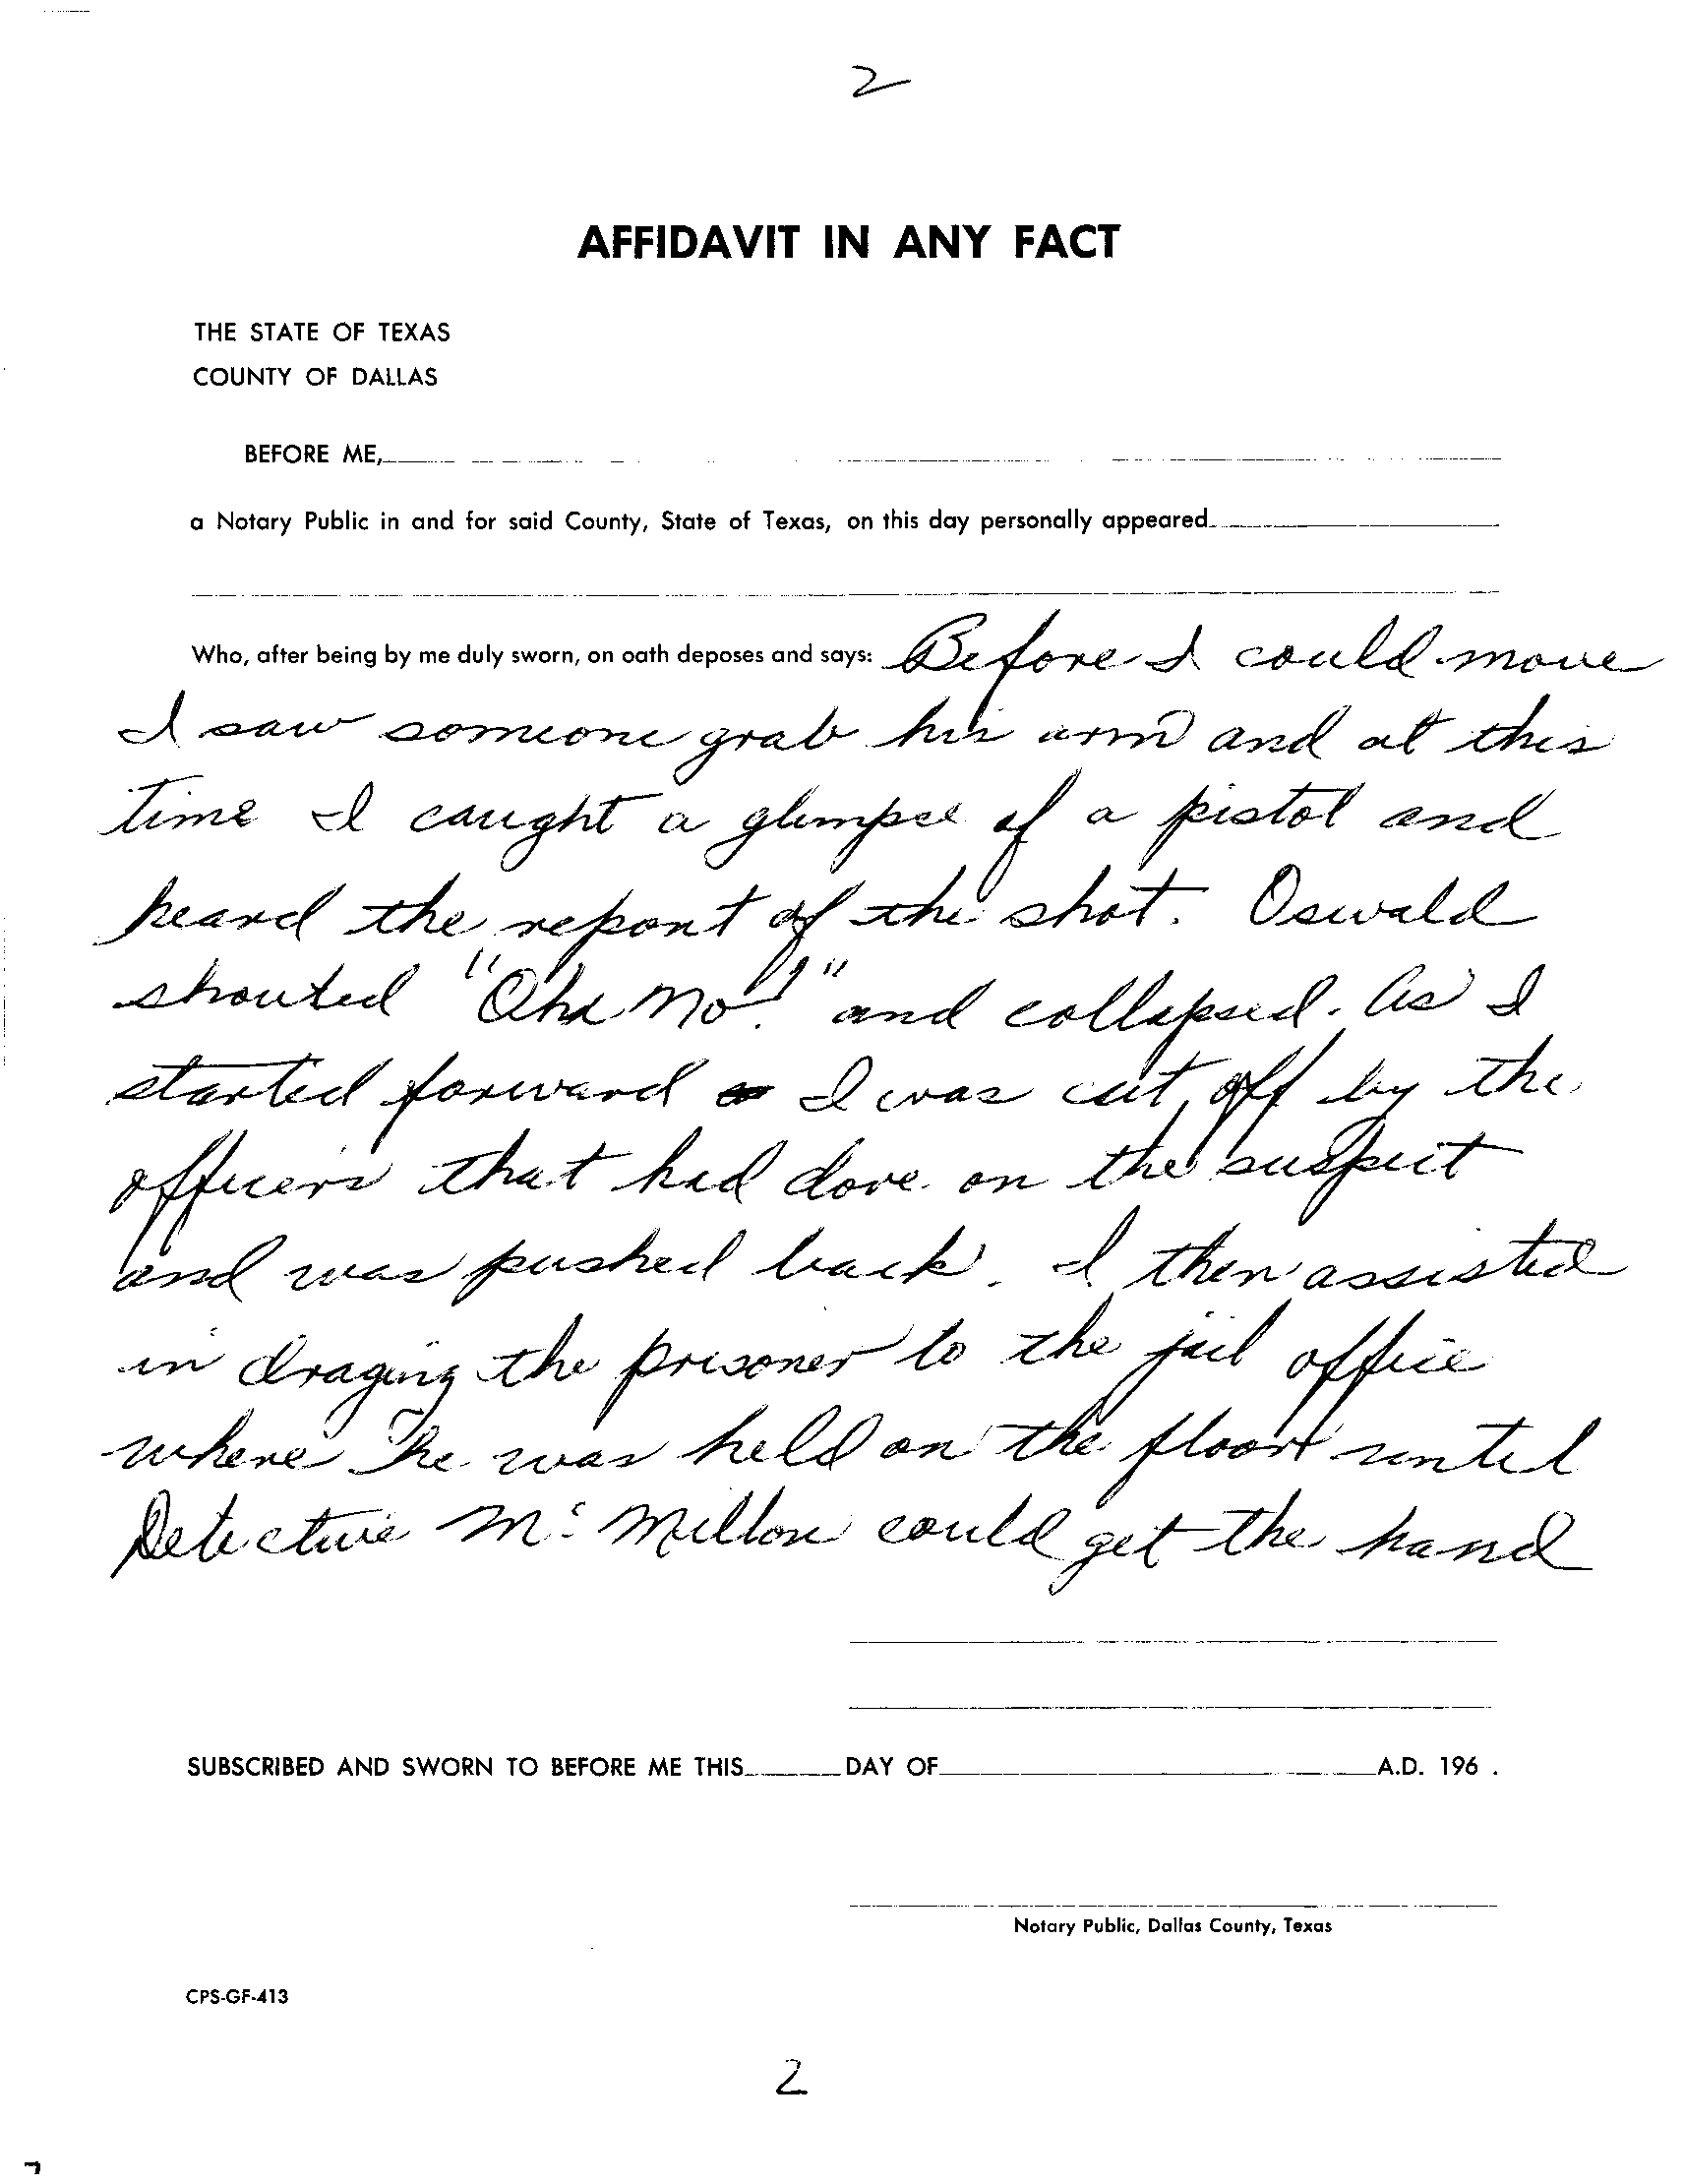 2
AFFIDAVIT IN ANY FACT
THE STATE OF TEXAS
COUNTY OF DALLAS
BEFORE ME,
a Notary Public in and for said County, State of Texas, on this day personally appeared
Who, after being by me duly sworn, on oath deposes and says: Before I could move
I saw someone grab his arm and at this
time I caught a glimpse of a pistol and
heard the report of the shot. Oswald
shouted "Oh no!" and collapsed. As I
started forward I was cut off by the
officers that had dove on the suspect
and was pushed back. I then assisted
in draging the prisoner to the jail office
where he was held on the floor until
Detective McMillon could get the hand
SUBSCRIBED AND SWORN TO BEFORE ME THIS DAY OF A.D. 196 .
Notary Public, Dallas County, Texas
CPS-GF-413
2